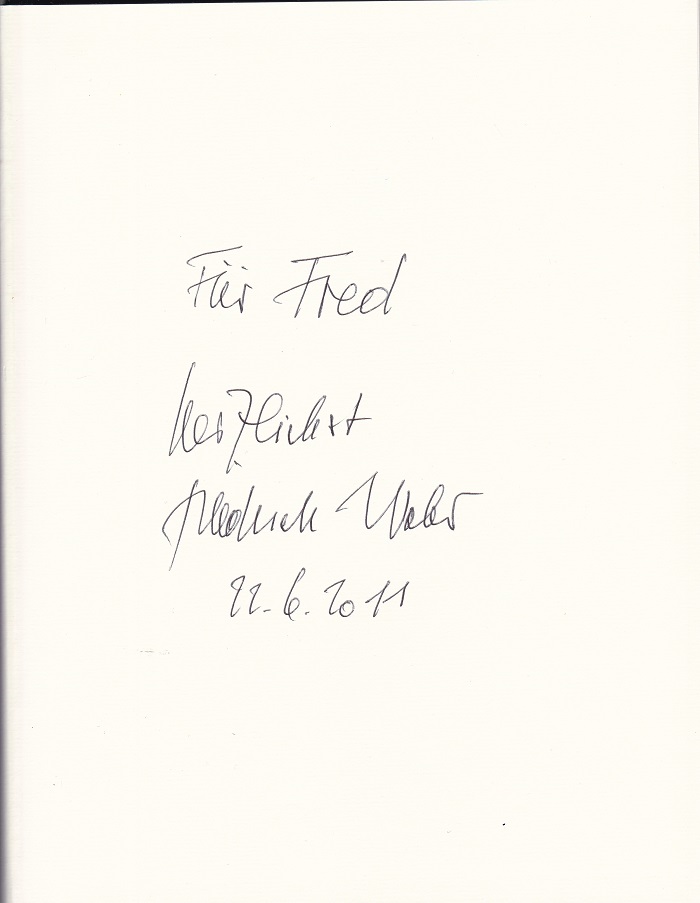 Für Fred
herzlichst
Friedrich
22.6.2011